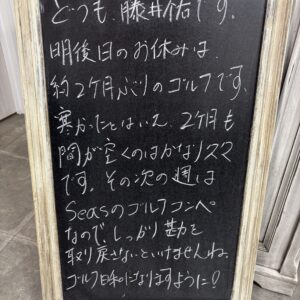 どうも、藤井佑です。
明後日のお休みは、
約2ヶ月ぶりのゴルフです。
寒かったとはいえ、2ヶ月も
間が空くのはかなりレスマ
です。その次の週は
Seasのゴルフコンペ
なので、しっかり勘を
取り戻さないといけませんね。
ゴルフ日和になりますように!